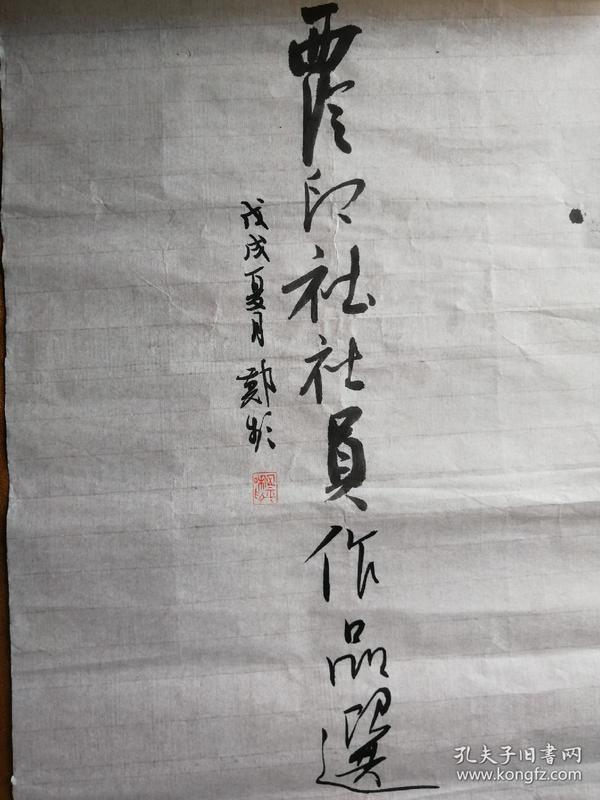 西泠印社社員作品選
戊戌夏月 鄭
孔夫子旧書网
www.kongfz.com